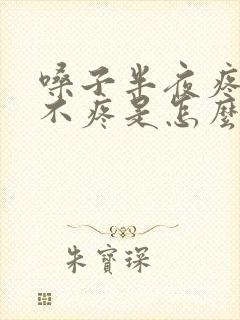 嗓子半夜疼
不疼是怎麼
朱寶琛